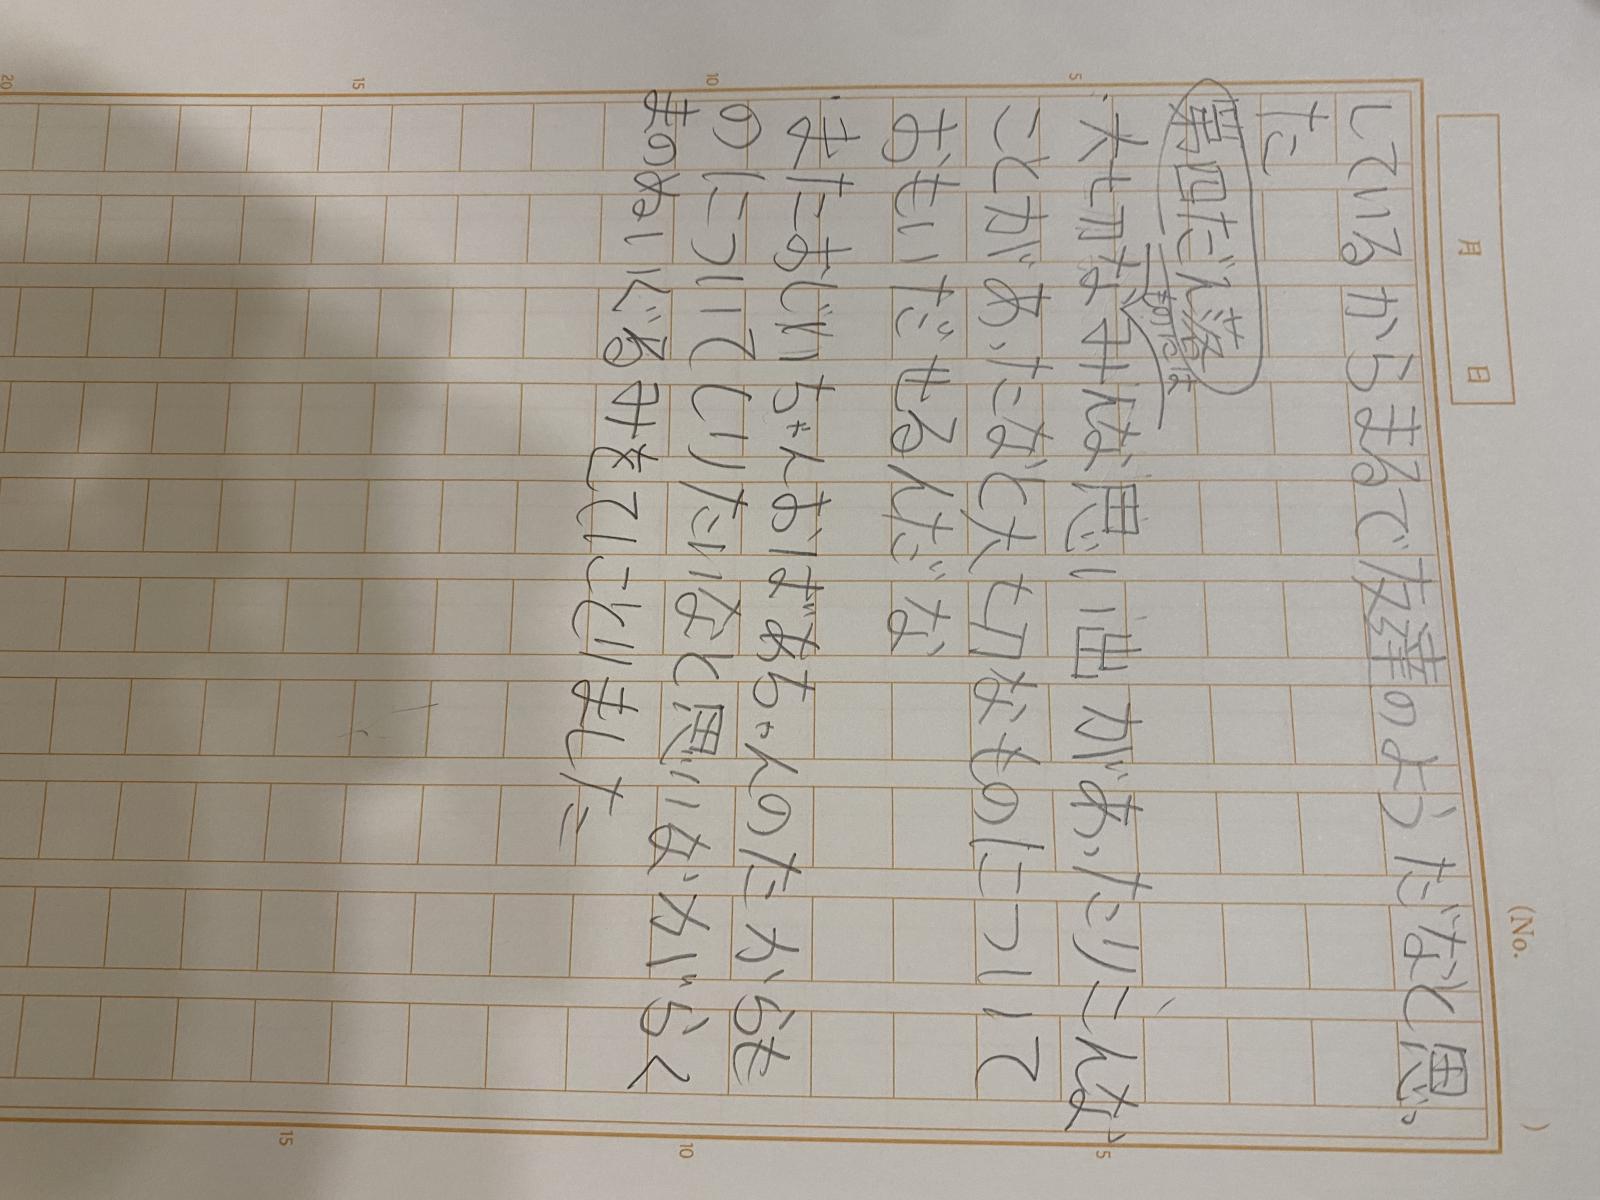 月 日
(No. )
しているからまるで友達のようだなと思っ
た
第四だん落
・大切なみんな思い出があったりこんな
ことがあったなど大切なものについて
おもいだせるんだな
・またおじいちゃんおばあちゃんのたからも
のについてしりたいなと思いながらく
まのぬいぐるみをてにとりました
5
10
15
20
5
10
15